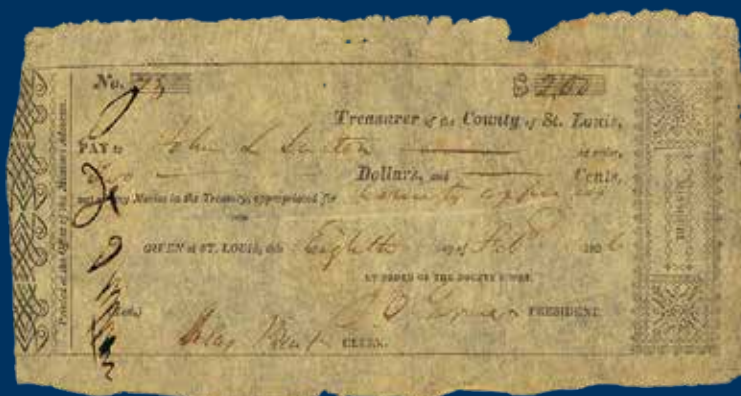 No. 75 $ 2,00
Treasurer of the County of St. Louis,
PAY to John L or order,
Two Dollars, and Cents,
out of any Monies in the Treasury, appropriated for County
GIVEN at ST. LOUIS, this Eighth day of Feb 1826
BY ORDER OF THE COUNTY COURT.
PRESIDENT
CLERK.
Printed at the Office of the Missouri Advocate.
MISSOURI.